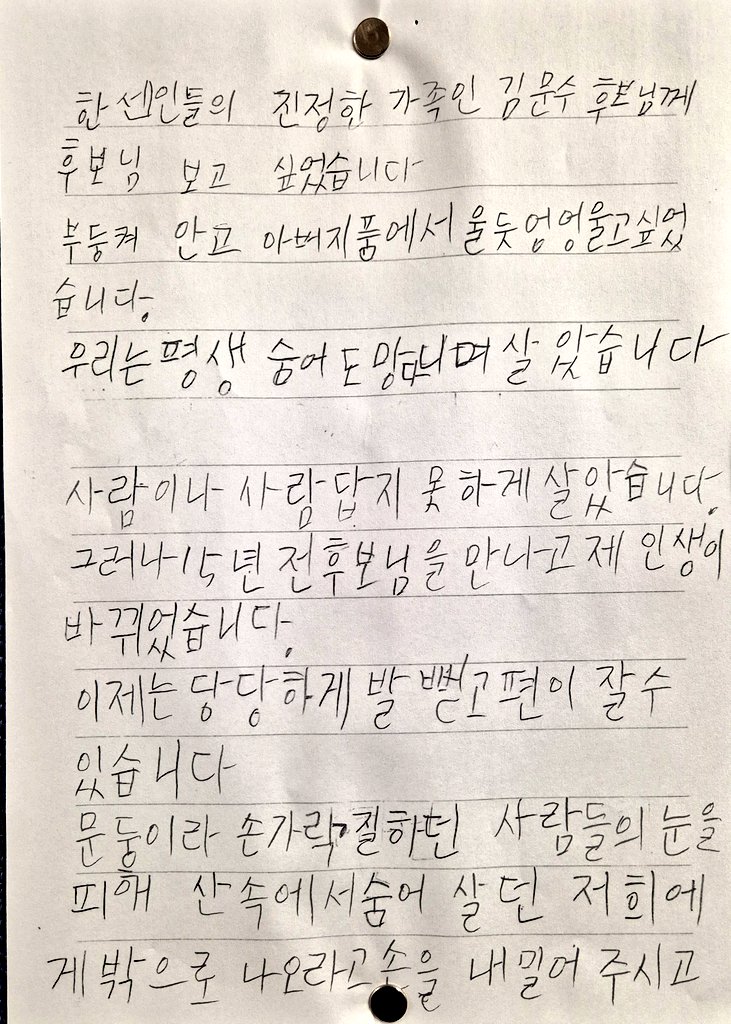 한센인들의 진정한 가족인 김문수 후보님께
후보님 보고 싶었습니다
부둥켜 안고 아버지품에서 울듯 엉엉울고싶었
습니다.
우리는 평생 숨어 도망다니며 살았습니다
사람이나 사람답지 못하게 살았습니다.
그러나 15년 전 후보님을 만나고 제 인생이
바뀌었습니다.
이제는 당당하게 발 뻗고 편이 잘수
있습니다
문둥이라 손가락질하던 사람들의 눈을
피해 산속에서 숨어 살던 저희에
게 밖으로 나오라고 손을 내밀어 주시고